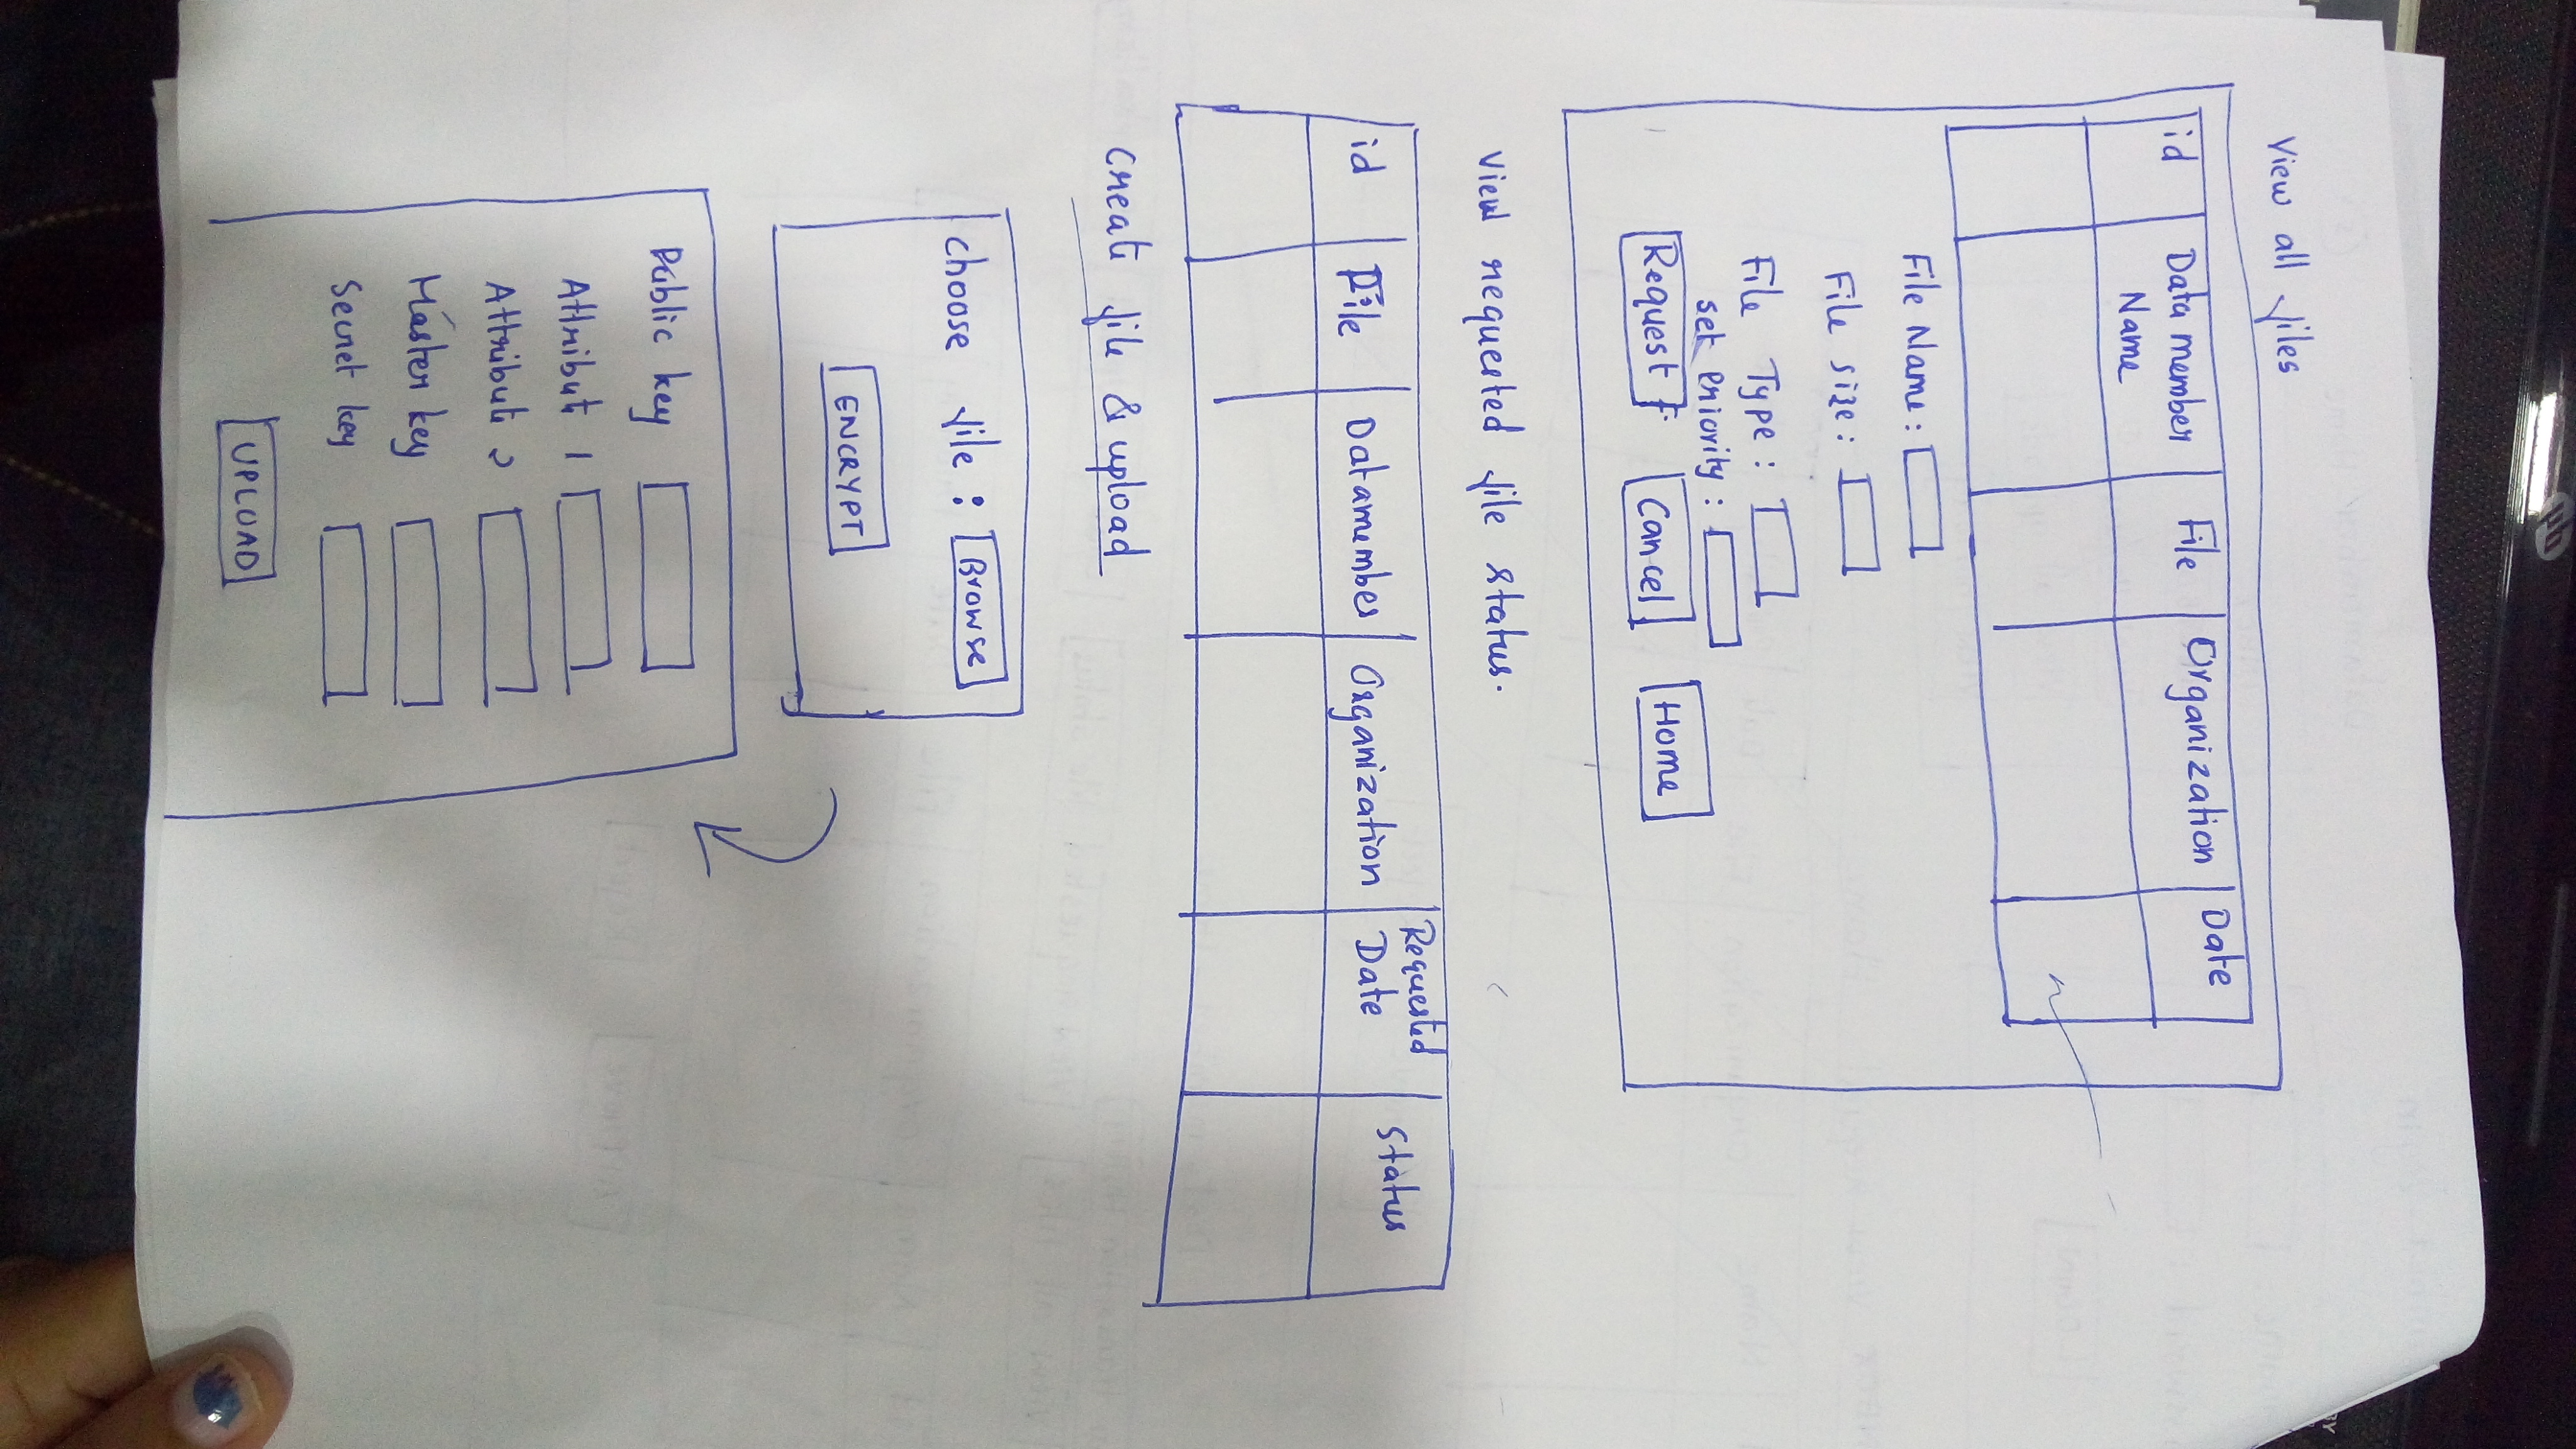 View all files
id Data member File Organization Date
Name
File Name:
File size:
File Type:
set priority:
Request Cancel Home
View requested file status.
id File Datamember Organization Requested Status
Date
Create file & upload
Choose file: Browse
ENCRYPT
Public key
Attribute 1
Attribute 2
Master key
Secret key
UPLOAD
hp